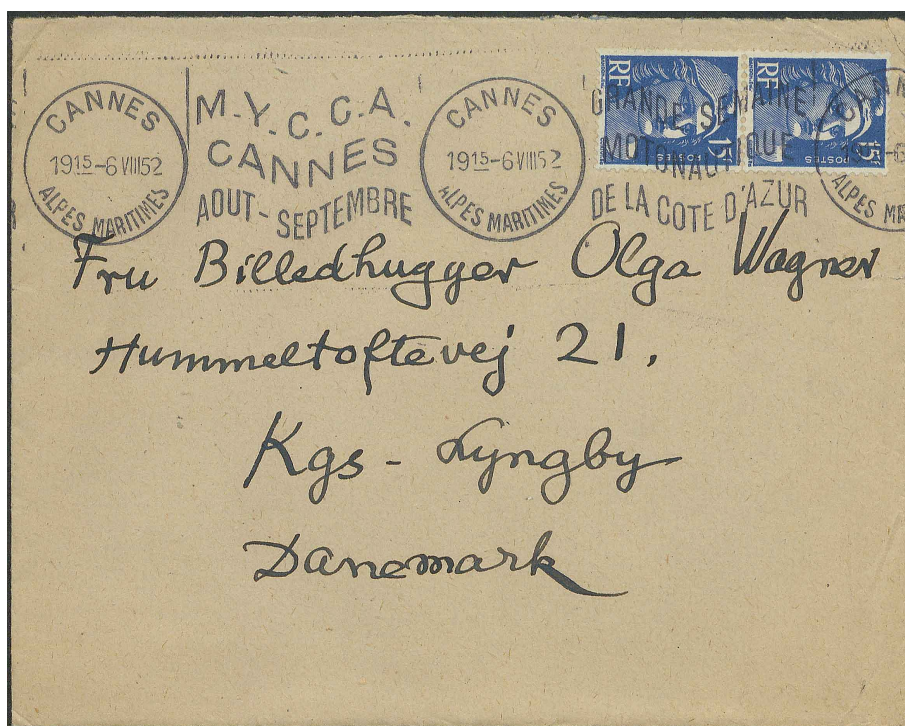 CANNES
1915-6 VIII 52
ALPES MARITIMES
M.Y.C.C.A.
CANNES
AOUT-SEPTEMBRE
CANNES
1915-6 VIII 52
ALPES MARITIMES
GRANDE SEMAINE
MOTONAUTIQUE
DE LA COTE D'AZUR
RF
15F
RF
15F
POSTES
Fru Billedhugger Olga Wagner
Hummeltoftevej 21.
Kgs - Lyngby
Danemark